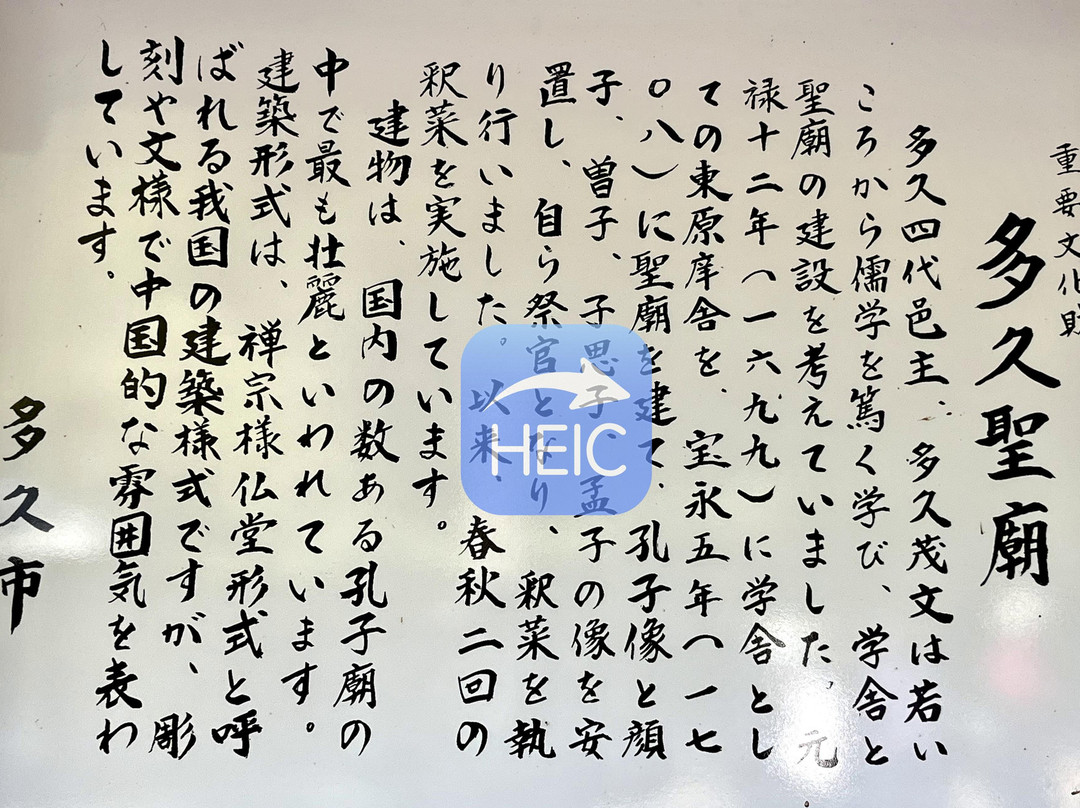 重要文化財
多久聖廟
多久四代邑主、多久茂文は若い
ころから儒学を篤く学び、学舎と
聖廟の建設を考えていました。元
禄十二年(一六九九)に学舎とし
ての東原庠舎を、宝永五年(一七
〇八)に聖廟を建て、孔子像と顔
子、曽子、子思子、孟子の像を安
置し、自ら祭官となり、釈菜を執
り行いました。以来、春秋二回の
釈菜を実施しています。
建物は、国内の数ある孔子廟の
中で最も壮麗といわれています。
建築形式は、禅宗様仏堂形式と呼
ばれる我国の建築様式ですが、彫
刻や文様で中国的な雰囲気を表わ
しています。
多久市
HEIC